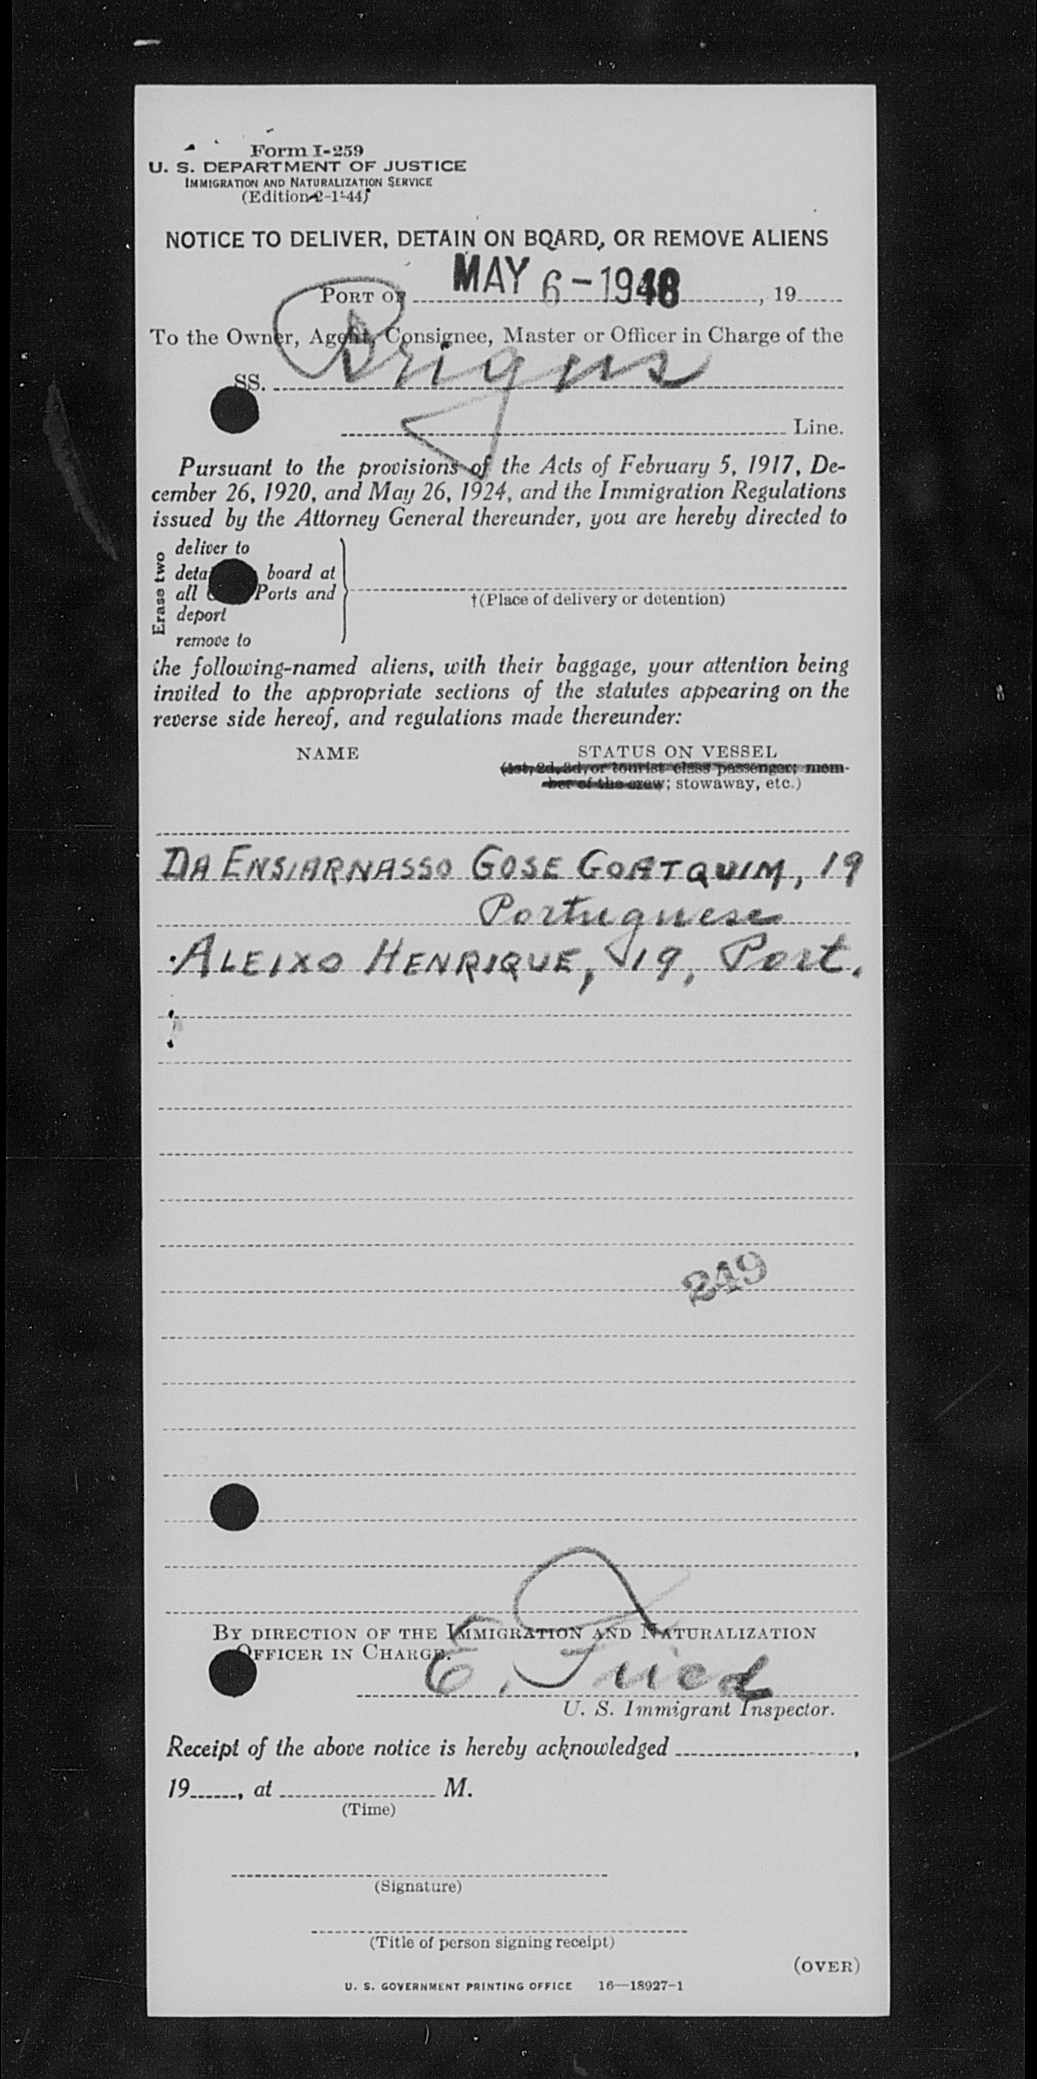 Form I-259
U. S. DEPARTMENT OF JUSTICE
IMMIGRATION AND NATURALIZATION SERVICE
(Edition 2-1-44)
NOTICE TO DELIVER, DETAIN ON BOARD, OR REMOVE ALIENS
MAY 6-1948
PORT OF , 19
To the Owner, Agent, Consignee, Master or Officer in Charge of the
SS. Brigus
Line.
Pursuant to the provisions of the Acts of February 5, 1917, De-
cember 26, 1920, and May 26, 1924, and the Immigration Regulations
issued by the Attorney General thereunder, you are hereby directed to
Erase two
deliver to
board at
all Ports and
deport
remove to
†(Place of delivery or detention)
the following-named aliens, with their baggage, your attention being
invited to the appropriate sections of the statutes appearing on the
reverse side hereof, and regulations made thereunder:
NAME STATUS ON VESSEL
(1st, 2d, 3d, or tourist class passenger; mem-
ber of the crew; stowaway, etc.)
DA ENSIARNASSO GOSE GOATQUIM, 19
Portuguese
ALEIXO HENRIQUE, 19, Port.
249
BY DIRECTION OF THE IMMIGRATION AND NATURALIZATION
OFFICER IN CHARGE.
E. Fried
U. S. Immigrant Inspector.
Receipt of the above notice is hereby acknowledged ,
19 , at M.
(Time)
(Signature)
(Title of person signing receipt)
(OVER)
U. S. GOVERNMENT PRINTING OFFICE 16—18927-1